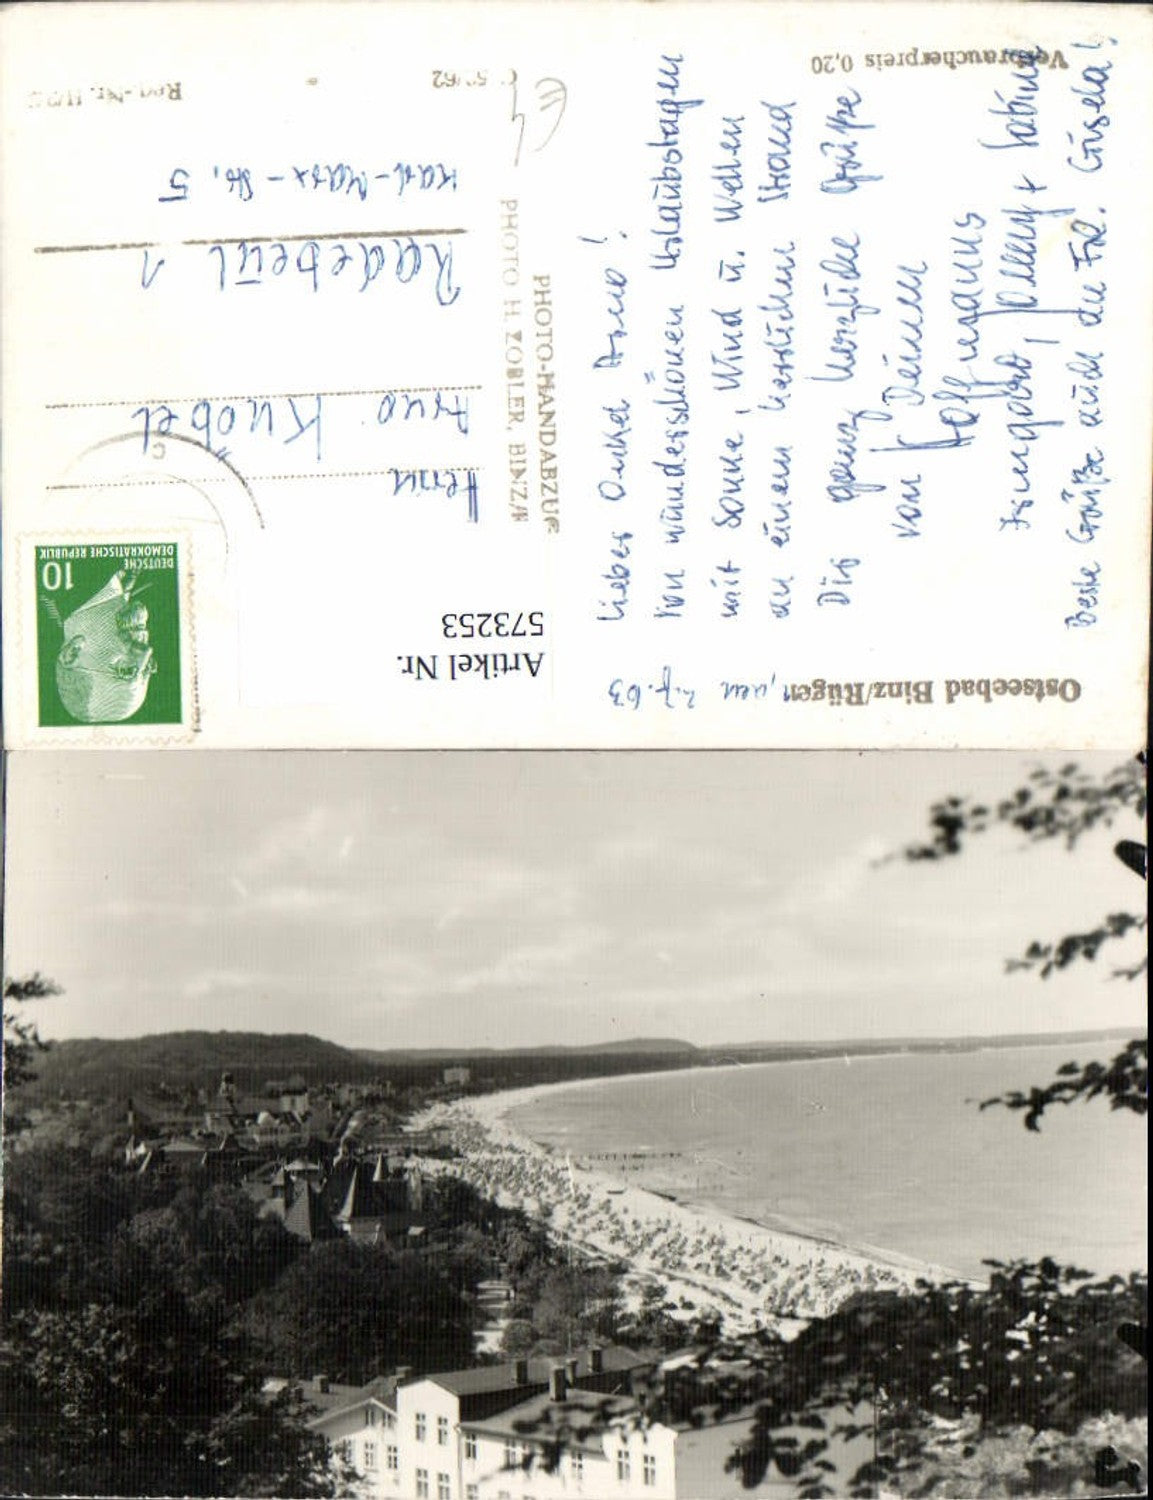 Ostseebad Binz/Rügen, den 2.7.63
Lieber Onkel Arno!
Von wunderschönen Urlaubstagen
mit Sonne, Wind u. Wellen
an einem herrlichen Strand
Dir ganz herzliche Grüße
von Deinen
Hoffmanns
Irmgard, + Sabine
Beste Grüße auch an Frl. Gisela!
Verbraucherpreis 0,20
PHOTO-HANDABZUG
PHOTO H. ZOBLER, BINZ/R
Artikel Nr.
573253
DEUTSCHE
DEMOKRATISCHE REPUBLIK
10
Herrn
Arno Knöbel
Radebeul 1
Karl-Marx-Str. 5
Reg.-Nr.